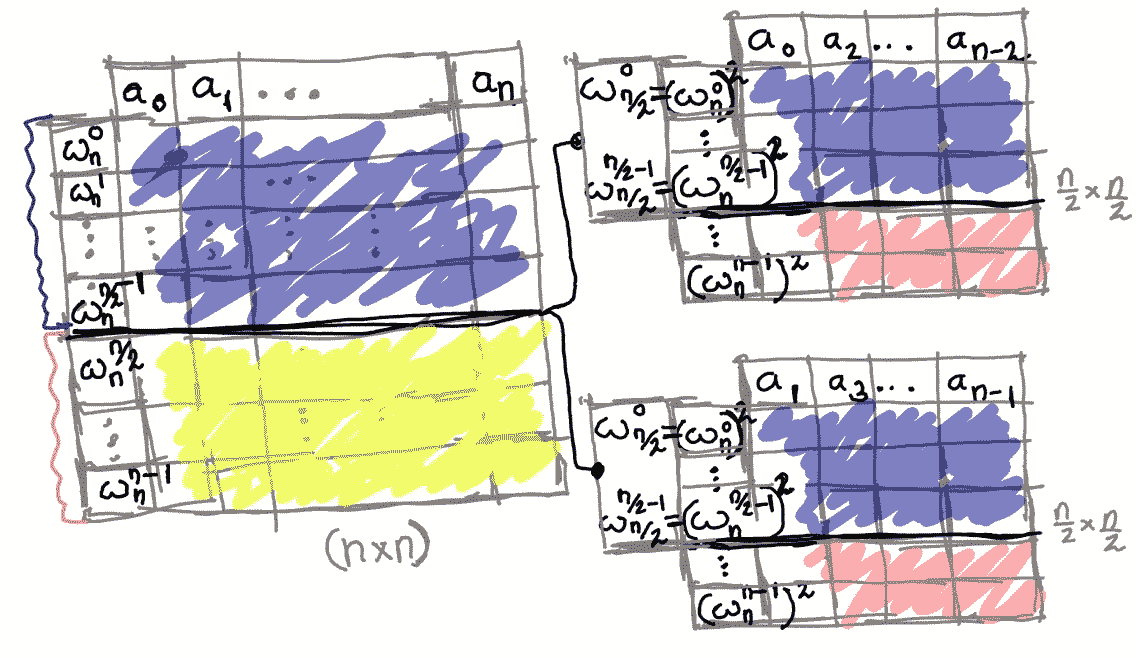 a₀ a₁ ... aₙ
ωₙ⁰
ωₙ¹
...
⋮ ⋮ ⋮ ⋮ ⋮
ωₙ^(n/2-1)
ωₙ^(n/2)
⋮ ⋮ ⋮
ωₙ^(n-1)
(n×n)
a₀ a₂ ... aₙ₋₂
ω_(n/2)^0 = (ωₙ⁰)²
⋮
ω_(n/2)^(n/2-1) = (ωₙ^(n/2-1))²
n/2 × n/2
⋮
(ωₙ^(n-1))²
a₁ a₃ ... aₙ₋₁
ω_(n/2)^0 = (ωₙ⁰)²
⋮
ω_(n/2)^(n/2-1) = (ωₙ^(n/2-1))²
n/2 × n/2
⋮
(ωₙ^(n-1))²